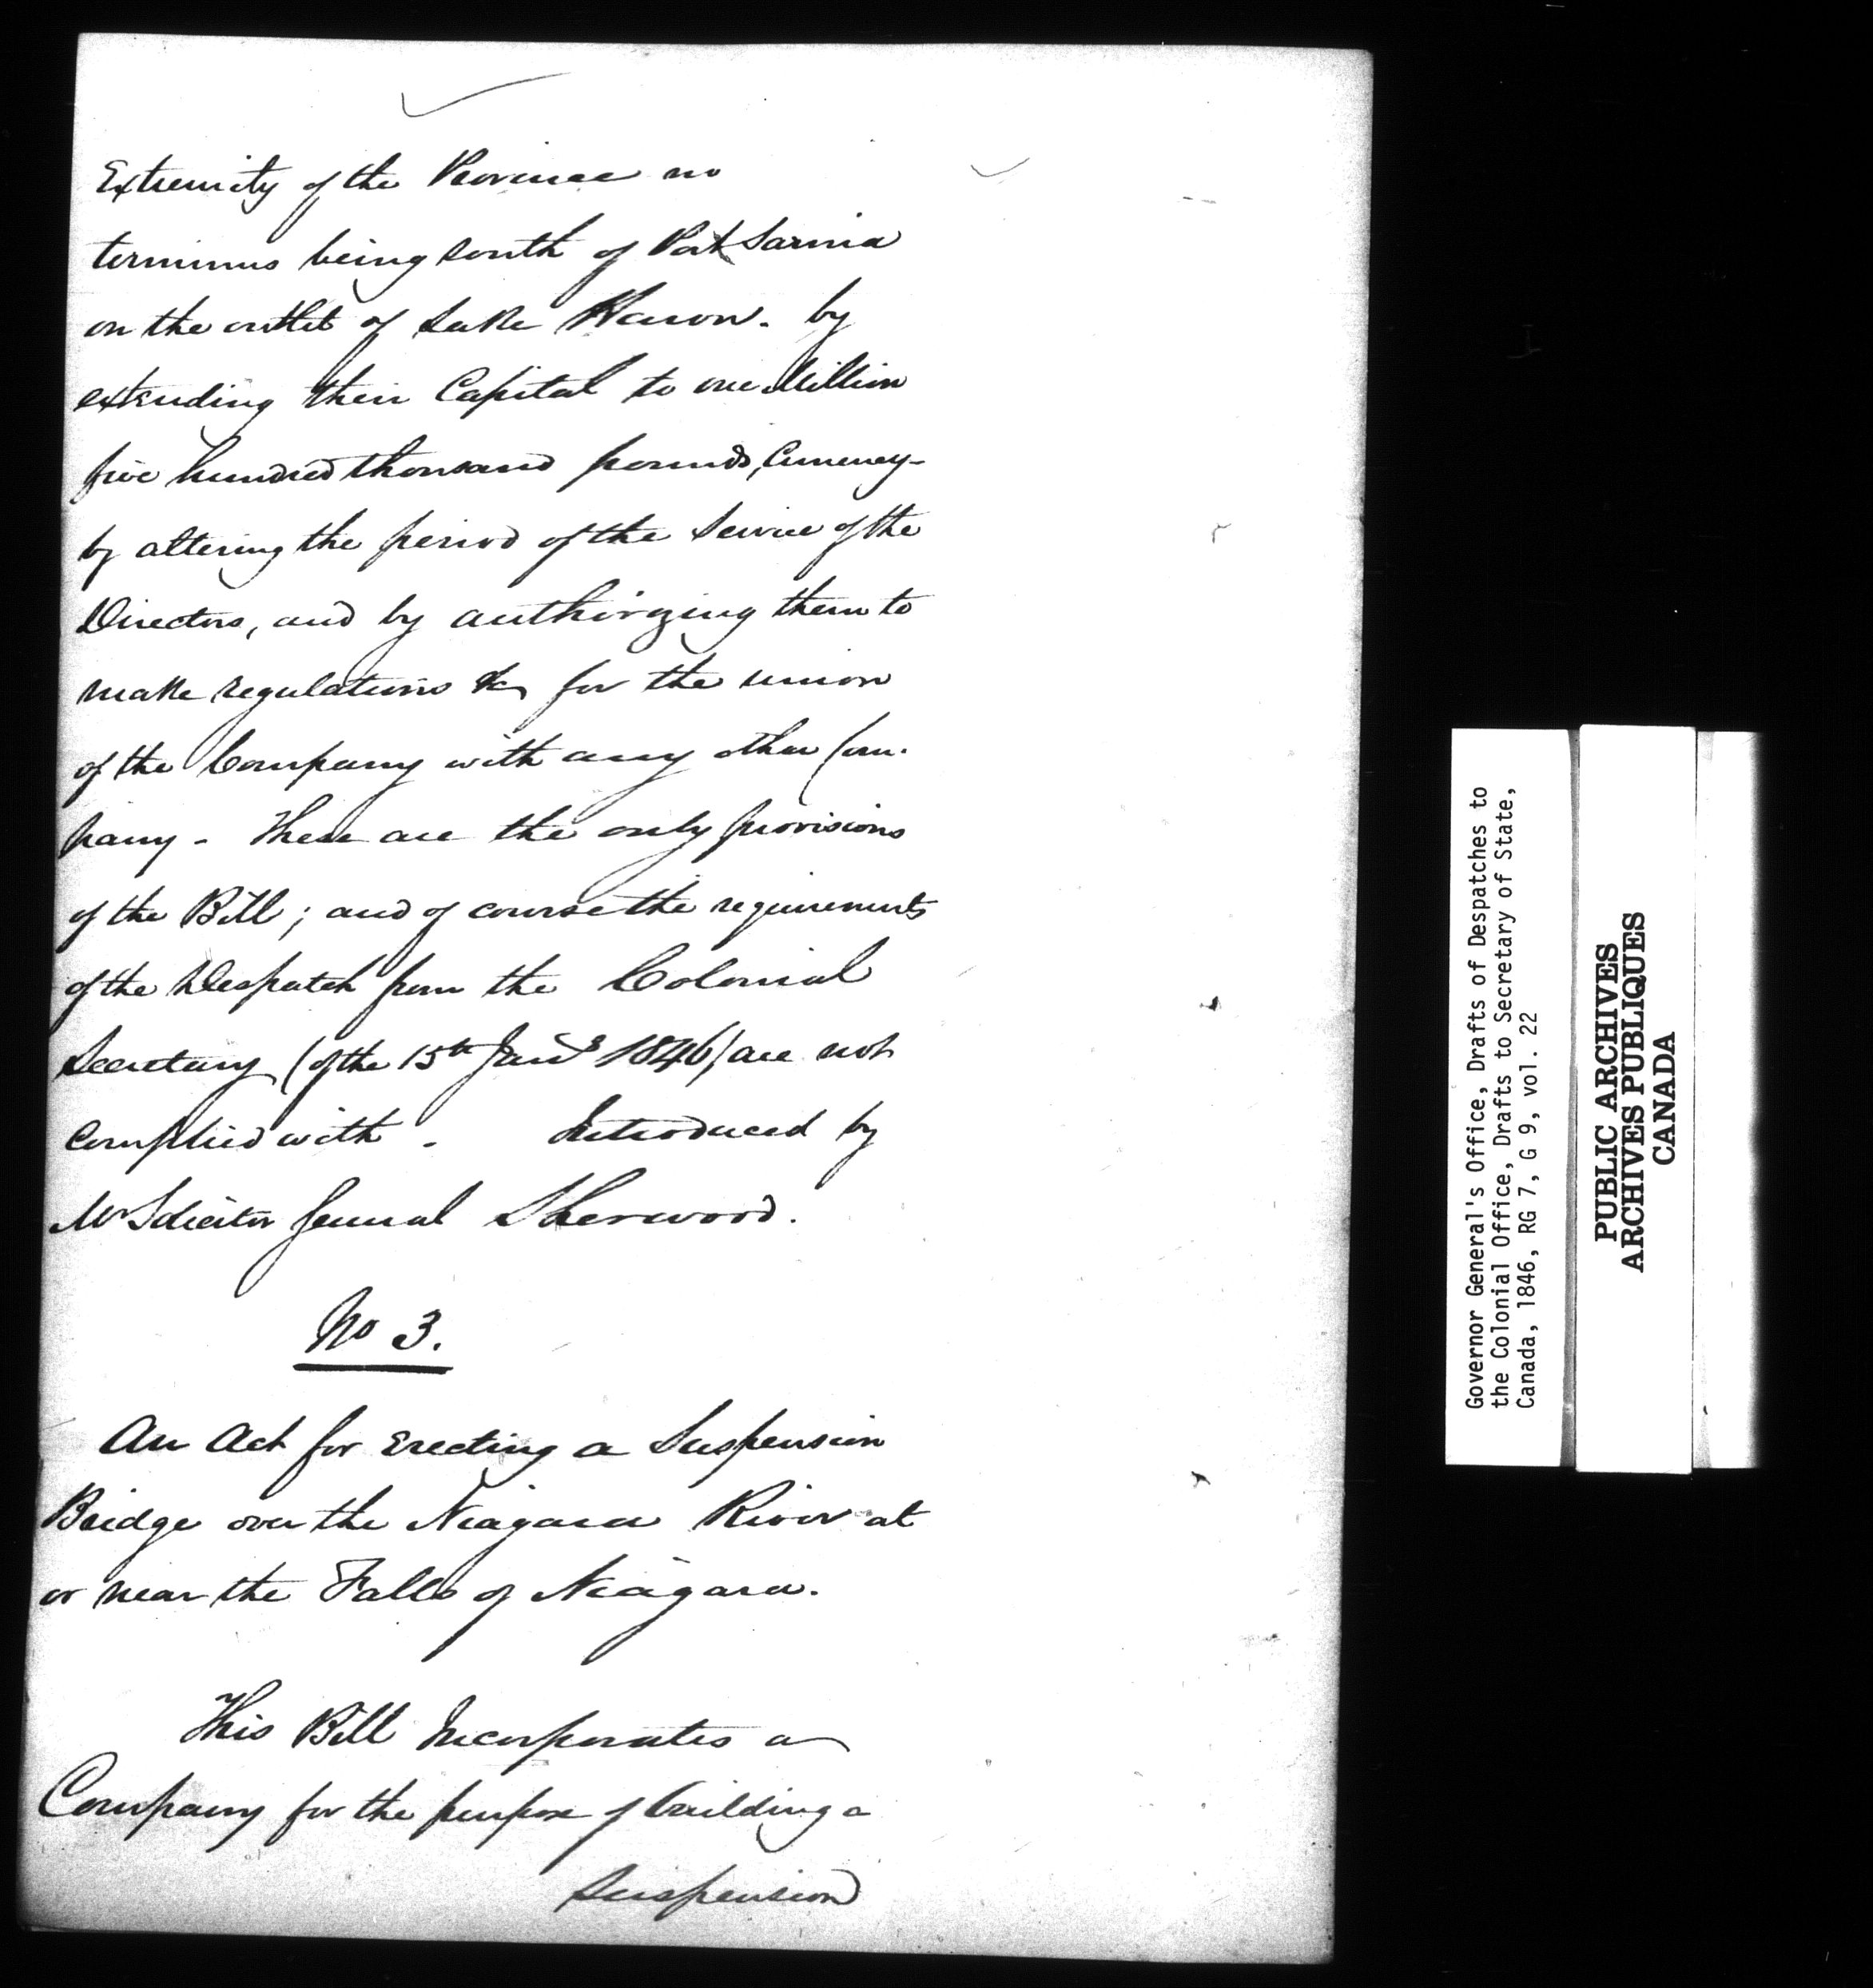 Extremity of the Province no
terminus being south of Port Sarnia
on the outlet of Lake Huron. by
extending their Capital to one Million
five hundred thousand pounds, Currency-
by altering the period of the Service of the
Directors, and by authorizing them to
make regulations &c for the union
of the Company with any other Com-
pany - These are the only provisions
of the Bill; and of course the requirements
of the Despatch from the Colonial
Secretary (of the 15th Jany 1846) are not
complied with - Introduced by
Mr Solicitor General Sherwood.
No 3.
An Act for Erecting a Suspension
Bridge over the Niagara River at
or near the Falls of Niagara.
This Bill Incorporates a
Company for the purpose of building a
Suspension
Governor General's Office, Drafts of Despatches to
the Colonial Office, Drafts to Secretary of State,
Canada, 1846, RG 7, G 9, vol. 22
PUBLIC ARCHIVES
ARCHIVES PUBLIQUES
CANADA